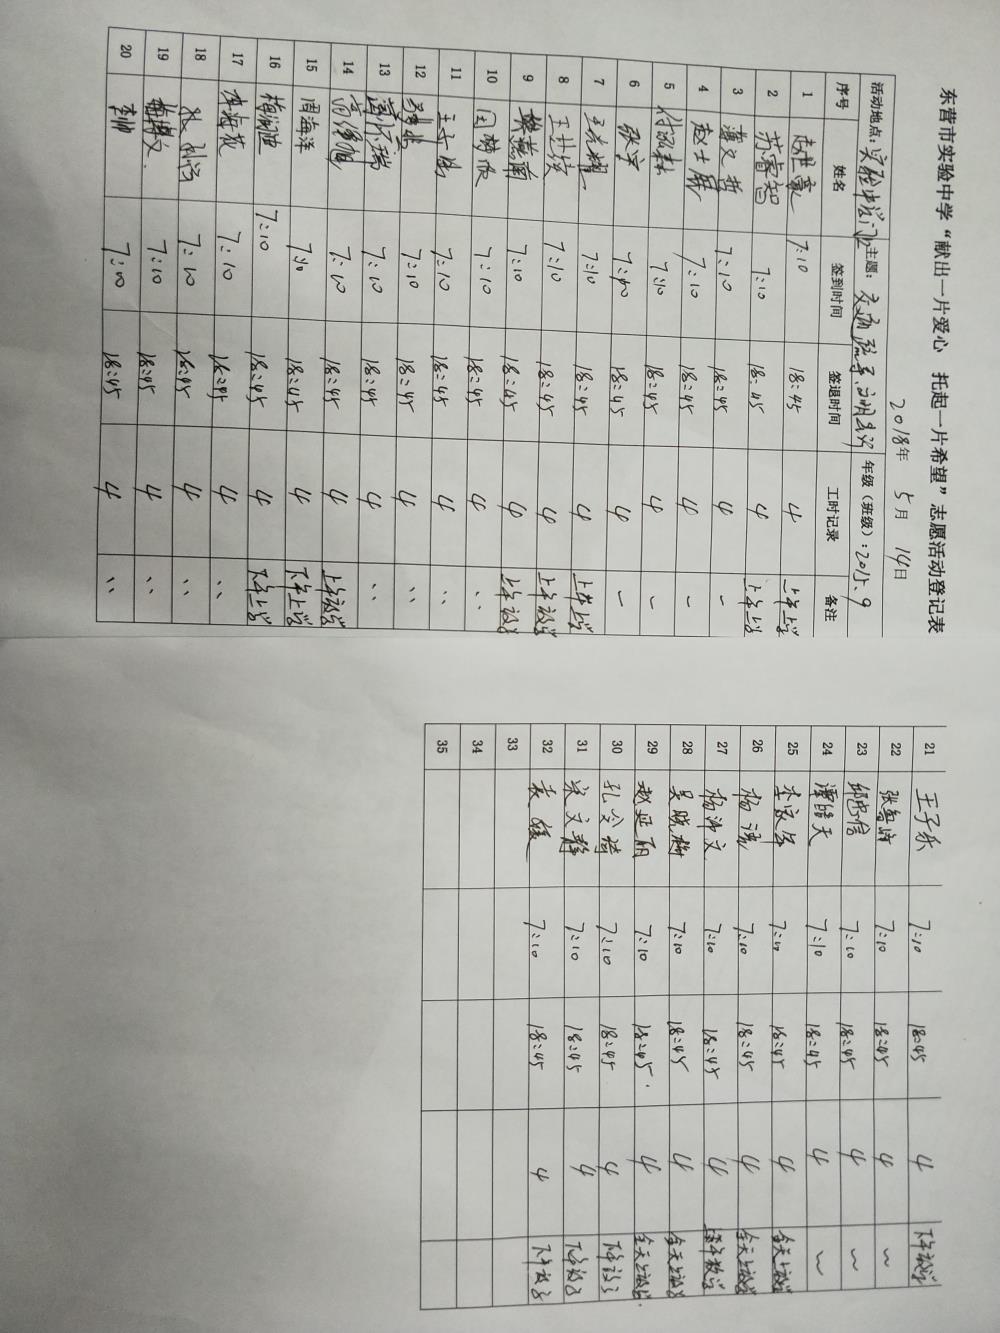 东营市实验中学“献出一片爱心 托起一片希望”志愿活动登记表
2018年 5月 14日
活动地点：实验中学门口 主题：交通疏导、文明出行 年级（班级）：2015.9
序号 姓名 签到时间 签退时间 工时记录 备注
1 7:10 18:45 4 上午上学
2 苏睿智 7:10 18:45 4 上午上学
3 7:10 18:45 4 ~
4 赵士群 7:10 18:45 4 ~
5 7:10 18:45 4 ~
6 张宇 7:10 18:45 4 ~
7 王光耀 7:10 18:45 4 上午上学
8 7:10 18:45 4 上午放学
9 樊燕南 7:10 18:45 4 上午放学
10 7:10 18:45 4 、、
11 7:10 18:45 4 、、
12 7:10 18:45 4 、、
13 7:10 18:45 4 、、
14 7:10 18:45 4 上午放学
15 周海洋 7:10 18:45 4 下午上学
16 7:10 18:45 4 下午上学
17 李海燕 7:10 18:45 4 、、
18 7:10 18:45 4 、、
19 7:10 18:45 4 、、
20 李帅 7:10 18:45 4 、、
21 王子乐 7:10 18:45 4 下午放学
22 7:10 18:45 4 ~
23 邱忠信 7:10 18:45 4 ~
24 谭皓天 7:10 18:45 4 ~
25 李家洋 7:10 18:45 4 全天上放学
26 7:10 18:45 4 全天上放学
27 杨沛文 7:10 18:45 4
28 吴晓梅 7:10 18:45 4 全天上放学
29 赵延丽 7:10 18:45 4 全天上放学
30 孔令琦 7:10 18:45 4 下午放学
31 宋文静 7:10 18:45 4 下午放学
32 袁媛 7:10 18:45 4 下午放学
33
34
35